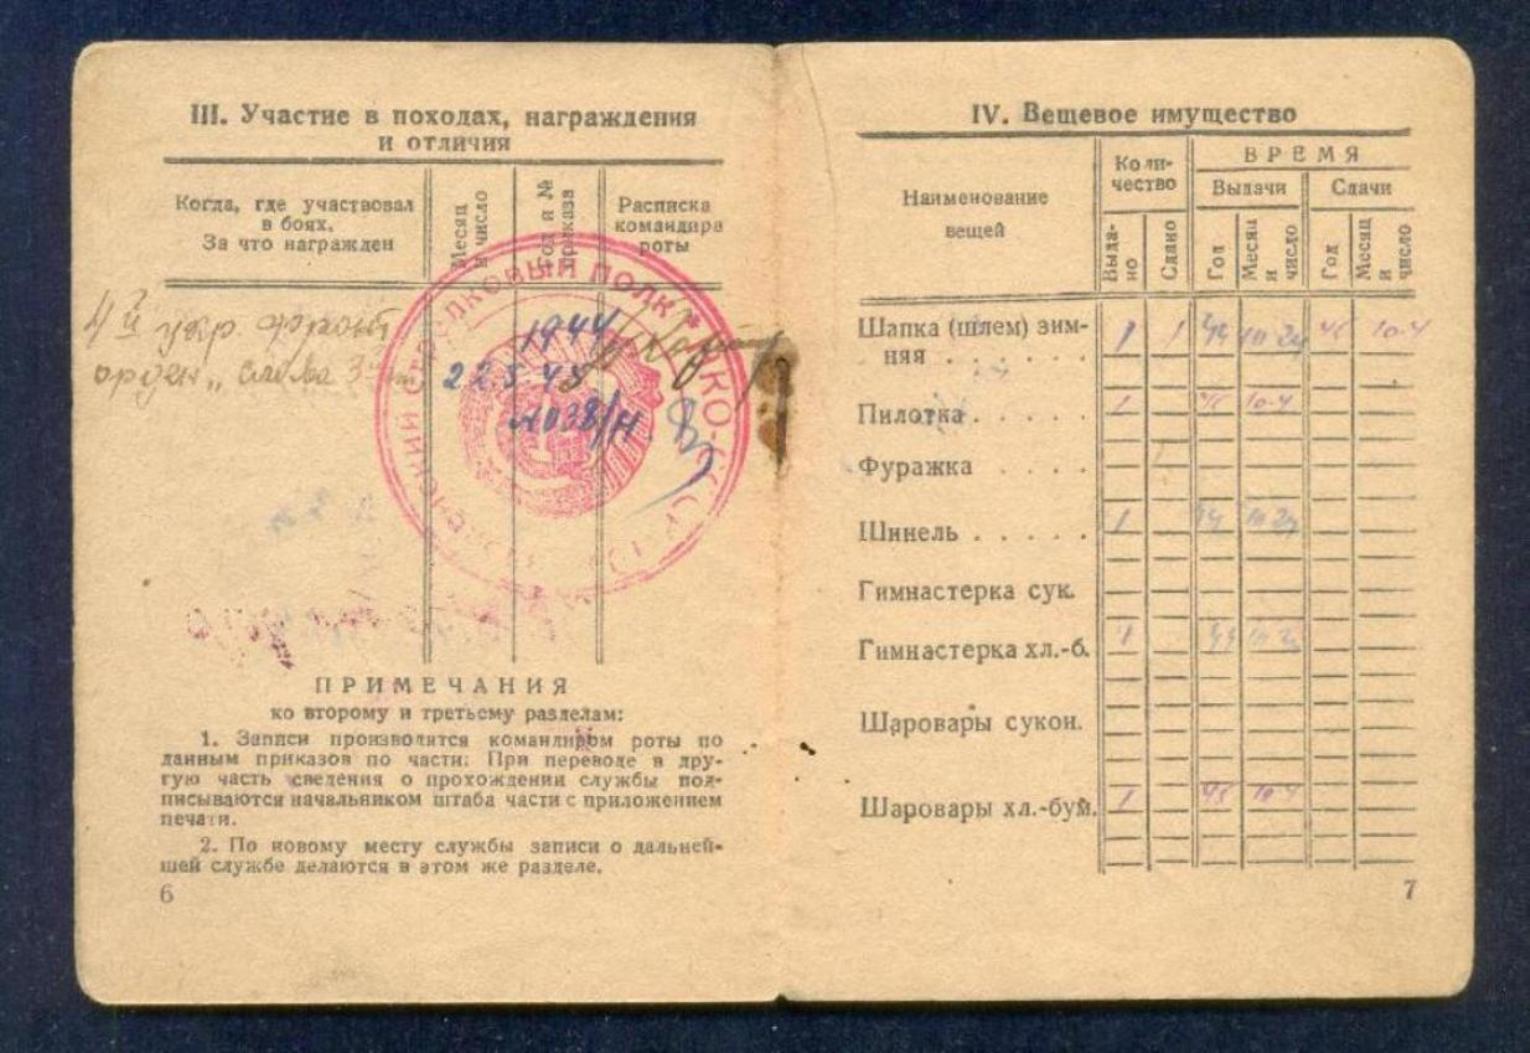 III. Участие в походах, награждения
и отличия
Когда, где участвовал
в боях.
За что награжден
Месяц
и число
Год и №
приказа
Расписка
командира
роты
СТРЕЛКОВЫЙ ПОЛК
4й укр. фронт
орден „Слава 3
1944
22.5 45
038/н
ПРИМЕЧАНИЯ
ко второму и третьему разделам:
1. Записи производятся командиром роты по
данным приказов по части. При переводе в дру-
гую часть сведения о прохождении службы под-
писываются начальником штаба части с приложением
печати.
2. По новому месту службы записи о дальней-
шей службе делаются в этом же разделе.
6
IV. Вещевое имущество
Наименование
вещей
Коли-
чество
ВРЕМЯ
Выдачи
Сдачи
Выда-
но
Сдано
Год
Месяц
и
число
Год
Месяц
и
число
Шапка (шлем) зим-
няя . . . . . . 1 1 45 10-4
Пилотка . . . . . 1 45 10-4
Фуражка . . . .
Шинель . . . . . 1 44
Гимнастерка сук.
Гимнастерка хл.-б. 1 44
Шаровары сукон.
Шаровары хл.-бум. 1 45 10-4
7